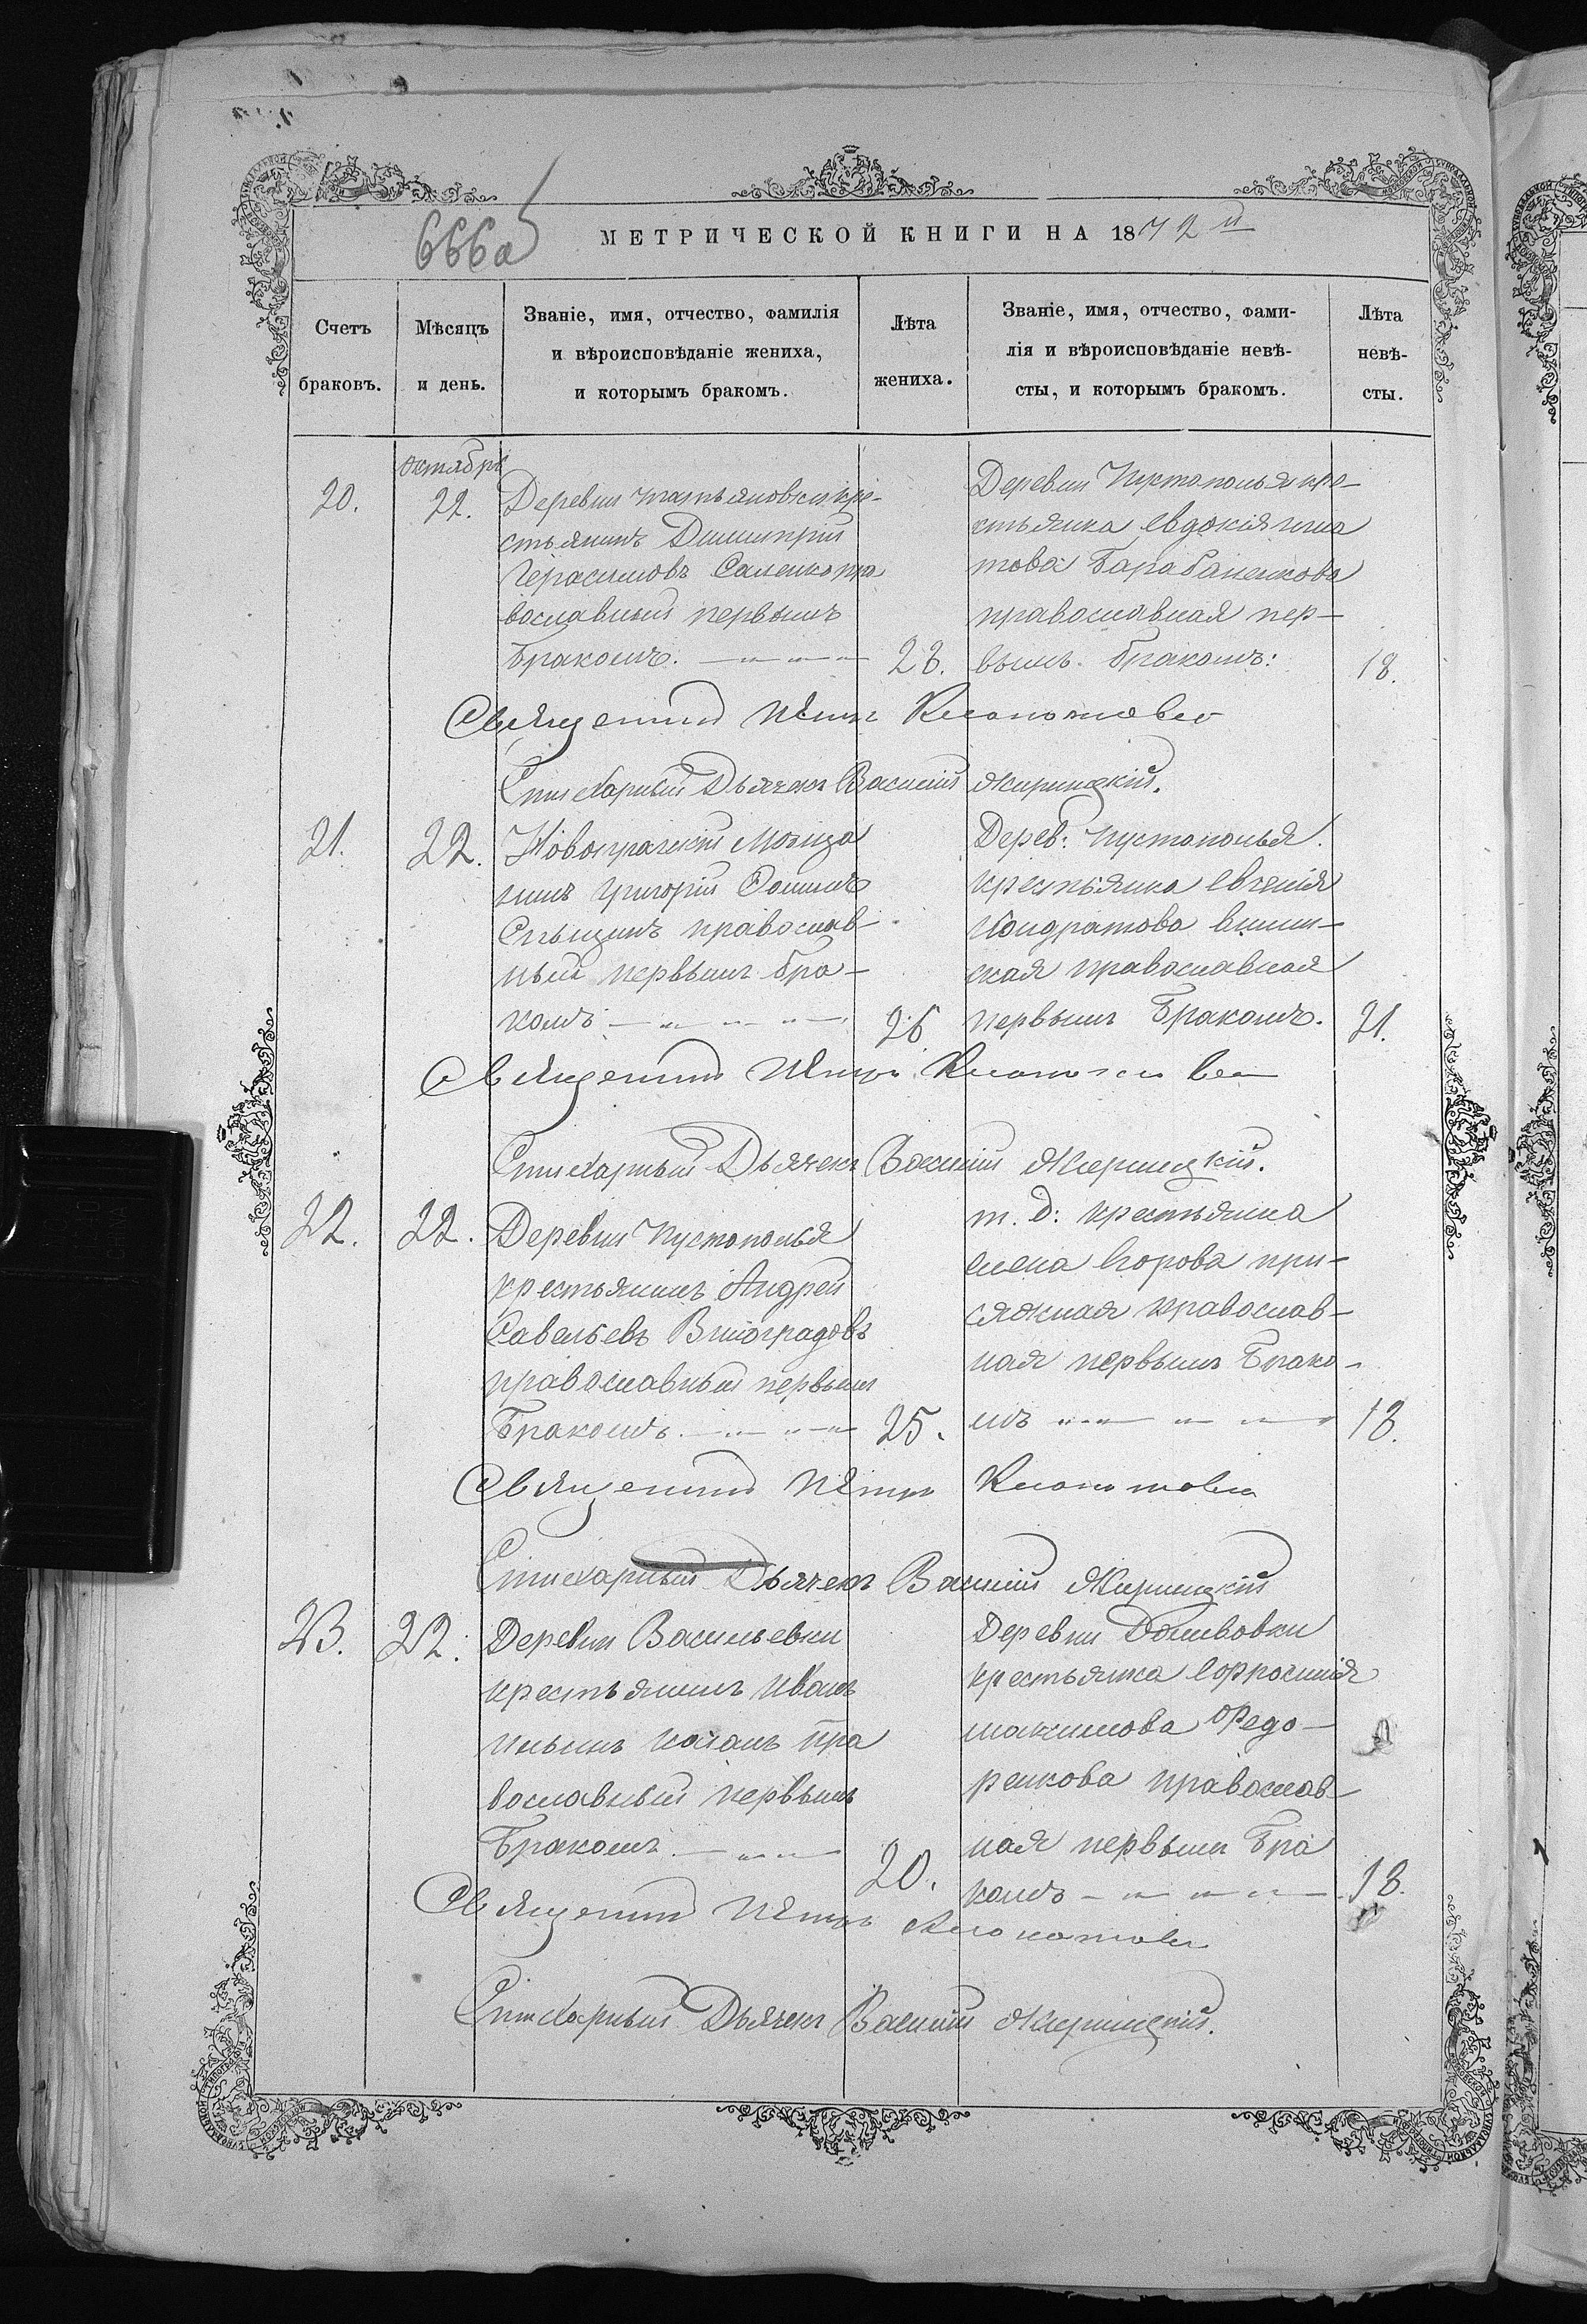 666об
МЕТРИЧЕСКОЙ КНИГИ НА 1872й
Счетъ браковъ.
Мѣсяцъ и день.
Званіе, имя, отчество, фамилія
и вѣроисповѣданіе жениха,
и которымъ бракомъ.
Лѣта жениха.
Званіе, имя, отчество, фами-
лія и вѣроисповѣданіе невѣ-
сты, и которымъ бракомъ.
Лѣта невѣ-
сты.
Октябрь
20.
22.
Деревни Татьяновки кре-
стьянинъ Димитрій
Герасимовъ Саленко пра
вославный первымъ
бракомъ.
23.
Деревни Пустополья кре-
стьянка Евдокія Игна
това Барабаненкова
православная пер-
вымъ бракомъ:
18.
Священникъ Петръ
Стихарный Дьячекъ Василій Жирицкій.
21.
22.
Новопражскій Мѣща
нинъ Григорій Фоминъ
православ-
ный первымъ бра-
комъ
26
Дерев: Пустополья
крестьянка Евгенія
Кондратова
православная
первымъ бракомъ.
21.
Священникъ Петръ
Стихарный Дьячекъ Василій Жирицкій.
22.
22.
Деревни Пустополья
крестьянинъ Андрей
Савельевъ Виноградовъ
православный первымъ
бракомъ.
25.
т. д: крестьянка
Елена Егорова При-
сяжная православ-
ная первымъ брако-
мъ
18.
Священникъ Петръ
Стихарный Дьячекъ Василій Жирицкій
23.
22.
Деревни Васильевки
крестьянинъ Иванъ
Ильинъ пра
вославный первымъ
бракомъ.
20.
Деревни
крестьянка Евфросинія
Максимова Федо-
ренкова православ-
ная первымъ бра
комъ
18.
Священникъ Петръ
Стихарный Дьячекъ Василій Жирицкій.